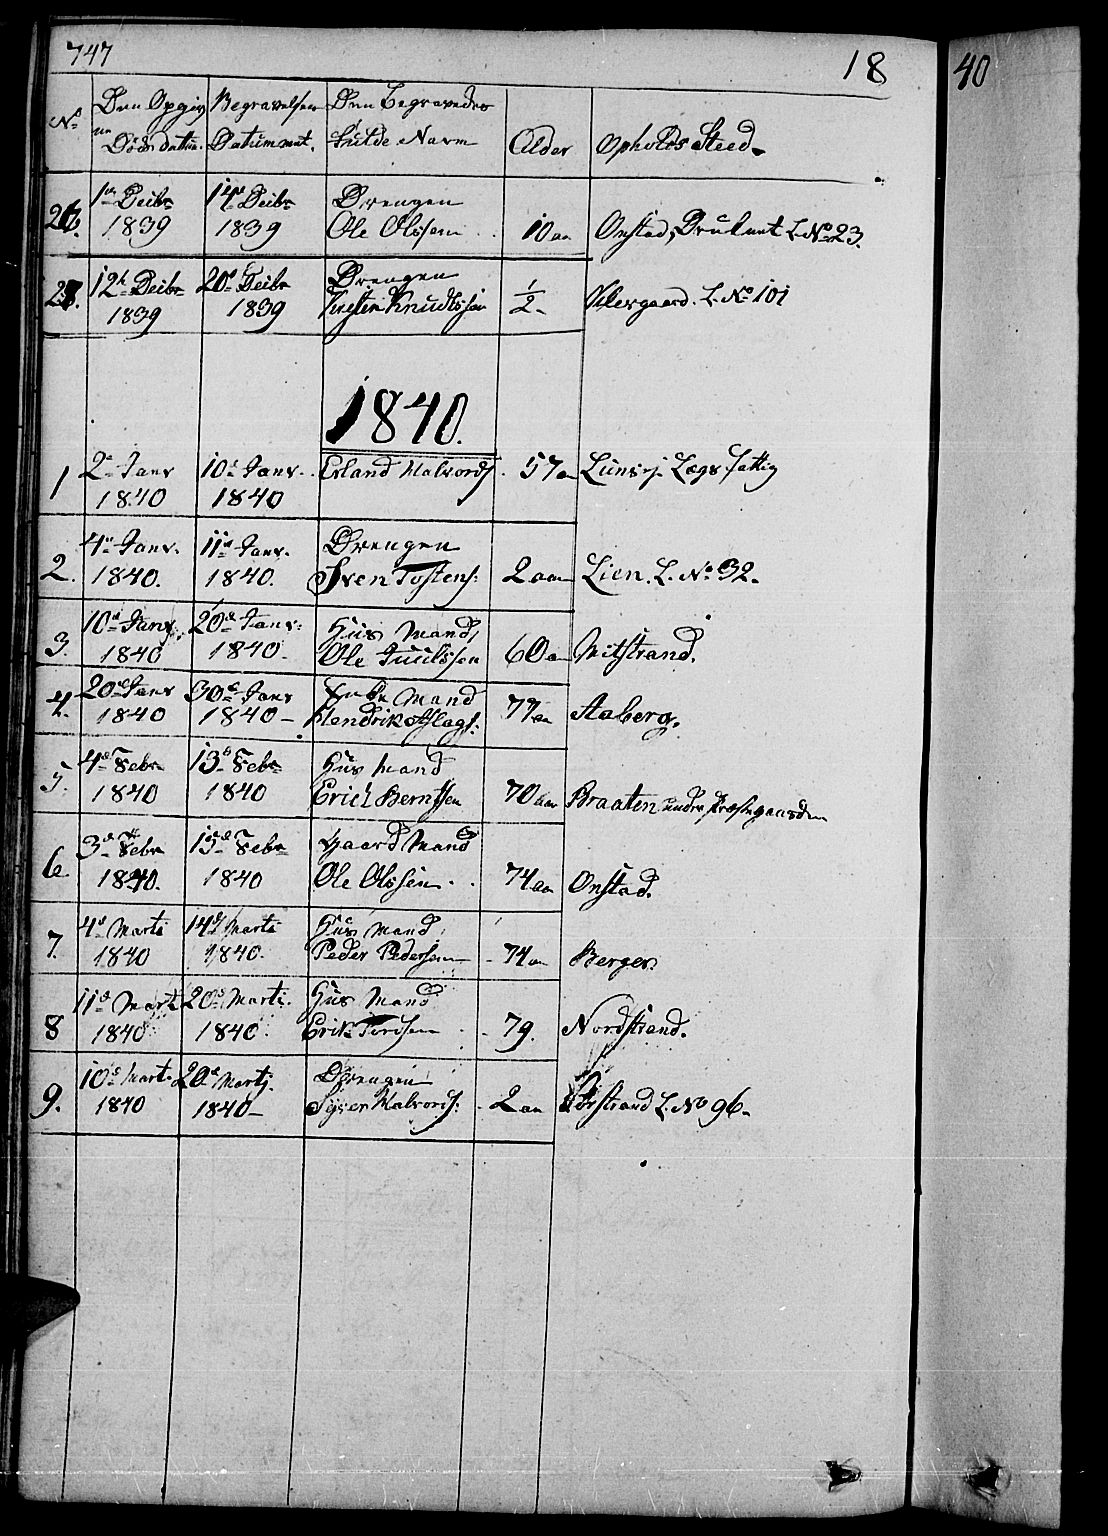 747
18
40
No Den Opgivne Døds datum. Begravelsens Datummet. Den Begravedes fulde Navn Alder Opholds Steed
26. 1ste Decbr 1839 14de Decbr 1839 Drengen Ole Olssen 10 aar Onstad, Bruket L. No 23.
27. 12te Decbr 1839 20de Decbr 1839 Drengen Knudssøn 1/2 L. No 101
1840.
1 2de Janr 1840 10de Janr. 1840 Erland Halvords 57 a Lægs fattig
2. 4de Janr. 1840. 11te Janr. 1840. Drengen Sven Tostens: 2 aar Lien. L. No. 32.
3. 10de Janr. 1840 20de Janr: 1840 Huus Mand, Ole Juulssen 60 a Nitstrand.
4. 20de Janr 1840 30de Janr 1840 Mand Hendrik Aslags: 77 aar Aaberg.
5. 4de Febr 1840 13de Febr 1840 Huus Mand Erich Berntsen 70 aar Braaten under Præstegaarden
6. 3de Febr 1840. 15de Febr 1840 Gaard Mand Ole Olssen 74 aar Onstad.
7. 4de Marti 1840 14de Marti 1840. Huus Mand Peder Pedersen 74 aar Berger
8 11te Marti 1840 20de Marti. 1840 Huus Mand Erik Tordsen 79. Nordstrand.
9. 10de Mart. 1840 20de Martj. 1840 Drengen Syver Halvords: 2 aar L. No 96.